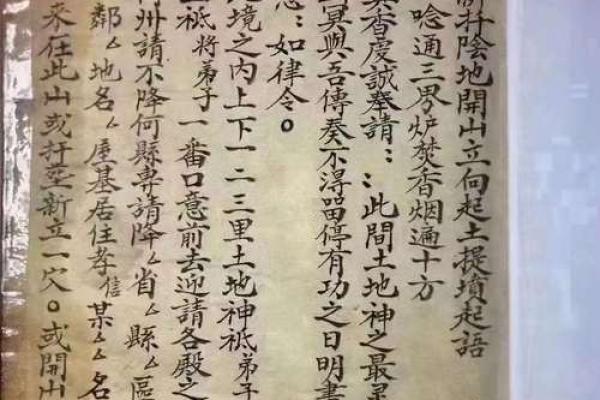 扦陰地開山立向起土提墳起語
唸通三界炉焚香烟遍十方
香慶誠奉請：：此間土地神之最灵
冥與吾傳奏不淂留停有功之日明書
：如律令。
境之内上下一二三里土地神祇弟子
祇將弟子一番口意前去迎請各殿之
州請不降何縣専請降厶省厶縣厶區
鄰厶地名厶廛基居住孝信某厶厶名
來在此山或扦塟新立一穴。或開山